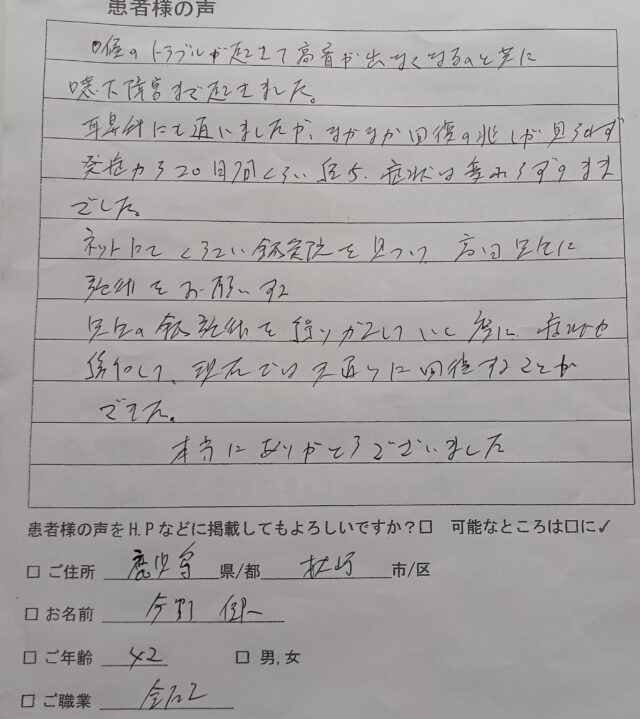 患者様の声
喉のトラブルが起きて高音が出なくなるのと共に
嚥下障害まで起きました。
耳鼻科にも通いましたが、なかなか回復の兆しが見られず
発症から20日間くらい経ち、症状は変わらずのまま
でした。
ネットにてくろい鍼灸院を見つけ 吉田先生に
施術をお願いする
先生の鍼施術を繰りかえしていく度に 症状が
緩和して、現在では元通りに回復することが
できた。
本当にありがとうございました
患者様の声をH.Pなどに掲載してもよろしいですか?☐ 可能なところは☐に✓
☐ ご住所 鹿児島 県/都 枕崎 市/区
☐ お名前 今野
☐ ご年齢 42 ☐ 男,女
☐ ご職業